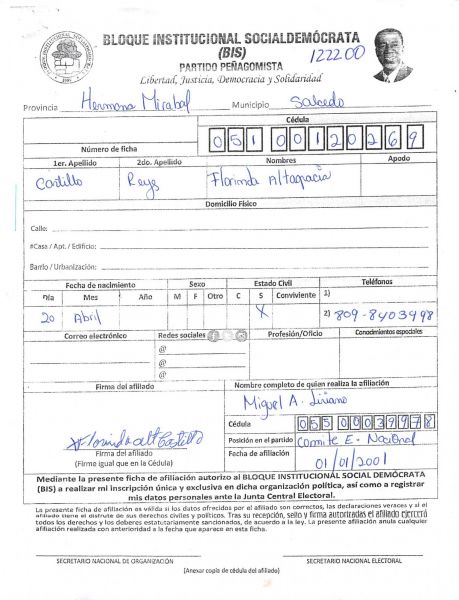 BLOQUE INSTITUCIONAL SOCIALDEMÓCRATA
(BIS)
PARTIDO PEÑAGOMISTA
122200
Libertad, Justicia, Democracia y Solidaridad
Provincia Hermana Mirabal Municipio Salcedo
Cédula
Número de ficha 05100120269
1er. Apellido 2do. Apellido Nombres Apodo
Castillo Reys Florinda Altagracia
Domicilio Físico
Calle:
#Casa / Apt. / Edificio:
Barrio / Urbanización:
Fecha de nacimiento Sexo Estado Civil Teléfonos
Día Mes Año M F Otro C S Conviviente 1)
20 Abril X 2) 809-8403498
Correo electrónico Redes sociales Profesión/Oficio Conocimientos especiales
@
@
@
Firma del afiliado Nombre completo de quien realiza la afiliación
Miguel A. Liviano
Cédula 05500039978
Florinda Alt Castillo
Posición en el partido Comite E. Nacional
Firma del afiliado
(Firma igual que en la Cédula)
Fecha de afiliación 01/01/2001
Mediante la presente ficha de afiliación autorizo al BLOQUE INSTITUCIONAL SOCIAL DEMÓCRATA
(BIS) a realizar mi inscripción única y exclusiva en dicha organización política, así como a registrar
mis datos personales ante la Junta Central Electoral.
La presente ficha de afiliación es válida si los datos ofrecidos por el afiliado son correctos, las declaraciones veraces y si el
afiliado tiene el disfrute de sus derechos civiles y políticos. Tras su recepción, sello y firma autorizadas el afiliado ejercerá
todos los derechos y los deberes estatutariamente sancionados, de acuerdo a la ley. La presente afiliación anula cualquier
afiliación realizada con anterioridad a la fecha que aparece en esta ficha.
SECRETARIO NACIONAL DE ORGANIZACIÓN SECRETARIO NACIONAL ELECTORAL
(Anexar copia de cédula del afiliado)